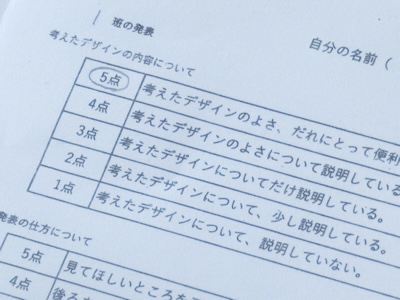 班の発表
自分の名前（
考えたデザインの内容について
5点 考えたデザインのよさ、だれにとって便利
4点 考えたデザインのよさについて説明している
3点 考えたデザインについてだけ説明している。
2点 考えたデザインについて、少し説明している。
1点 考えたデザインについて、説明していない。
発表の仕方について
5点 見てほしいところを
4点